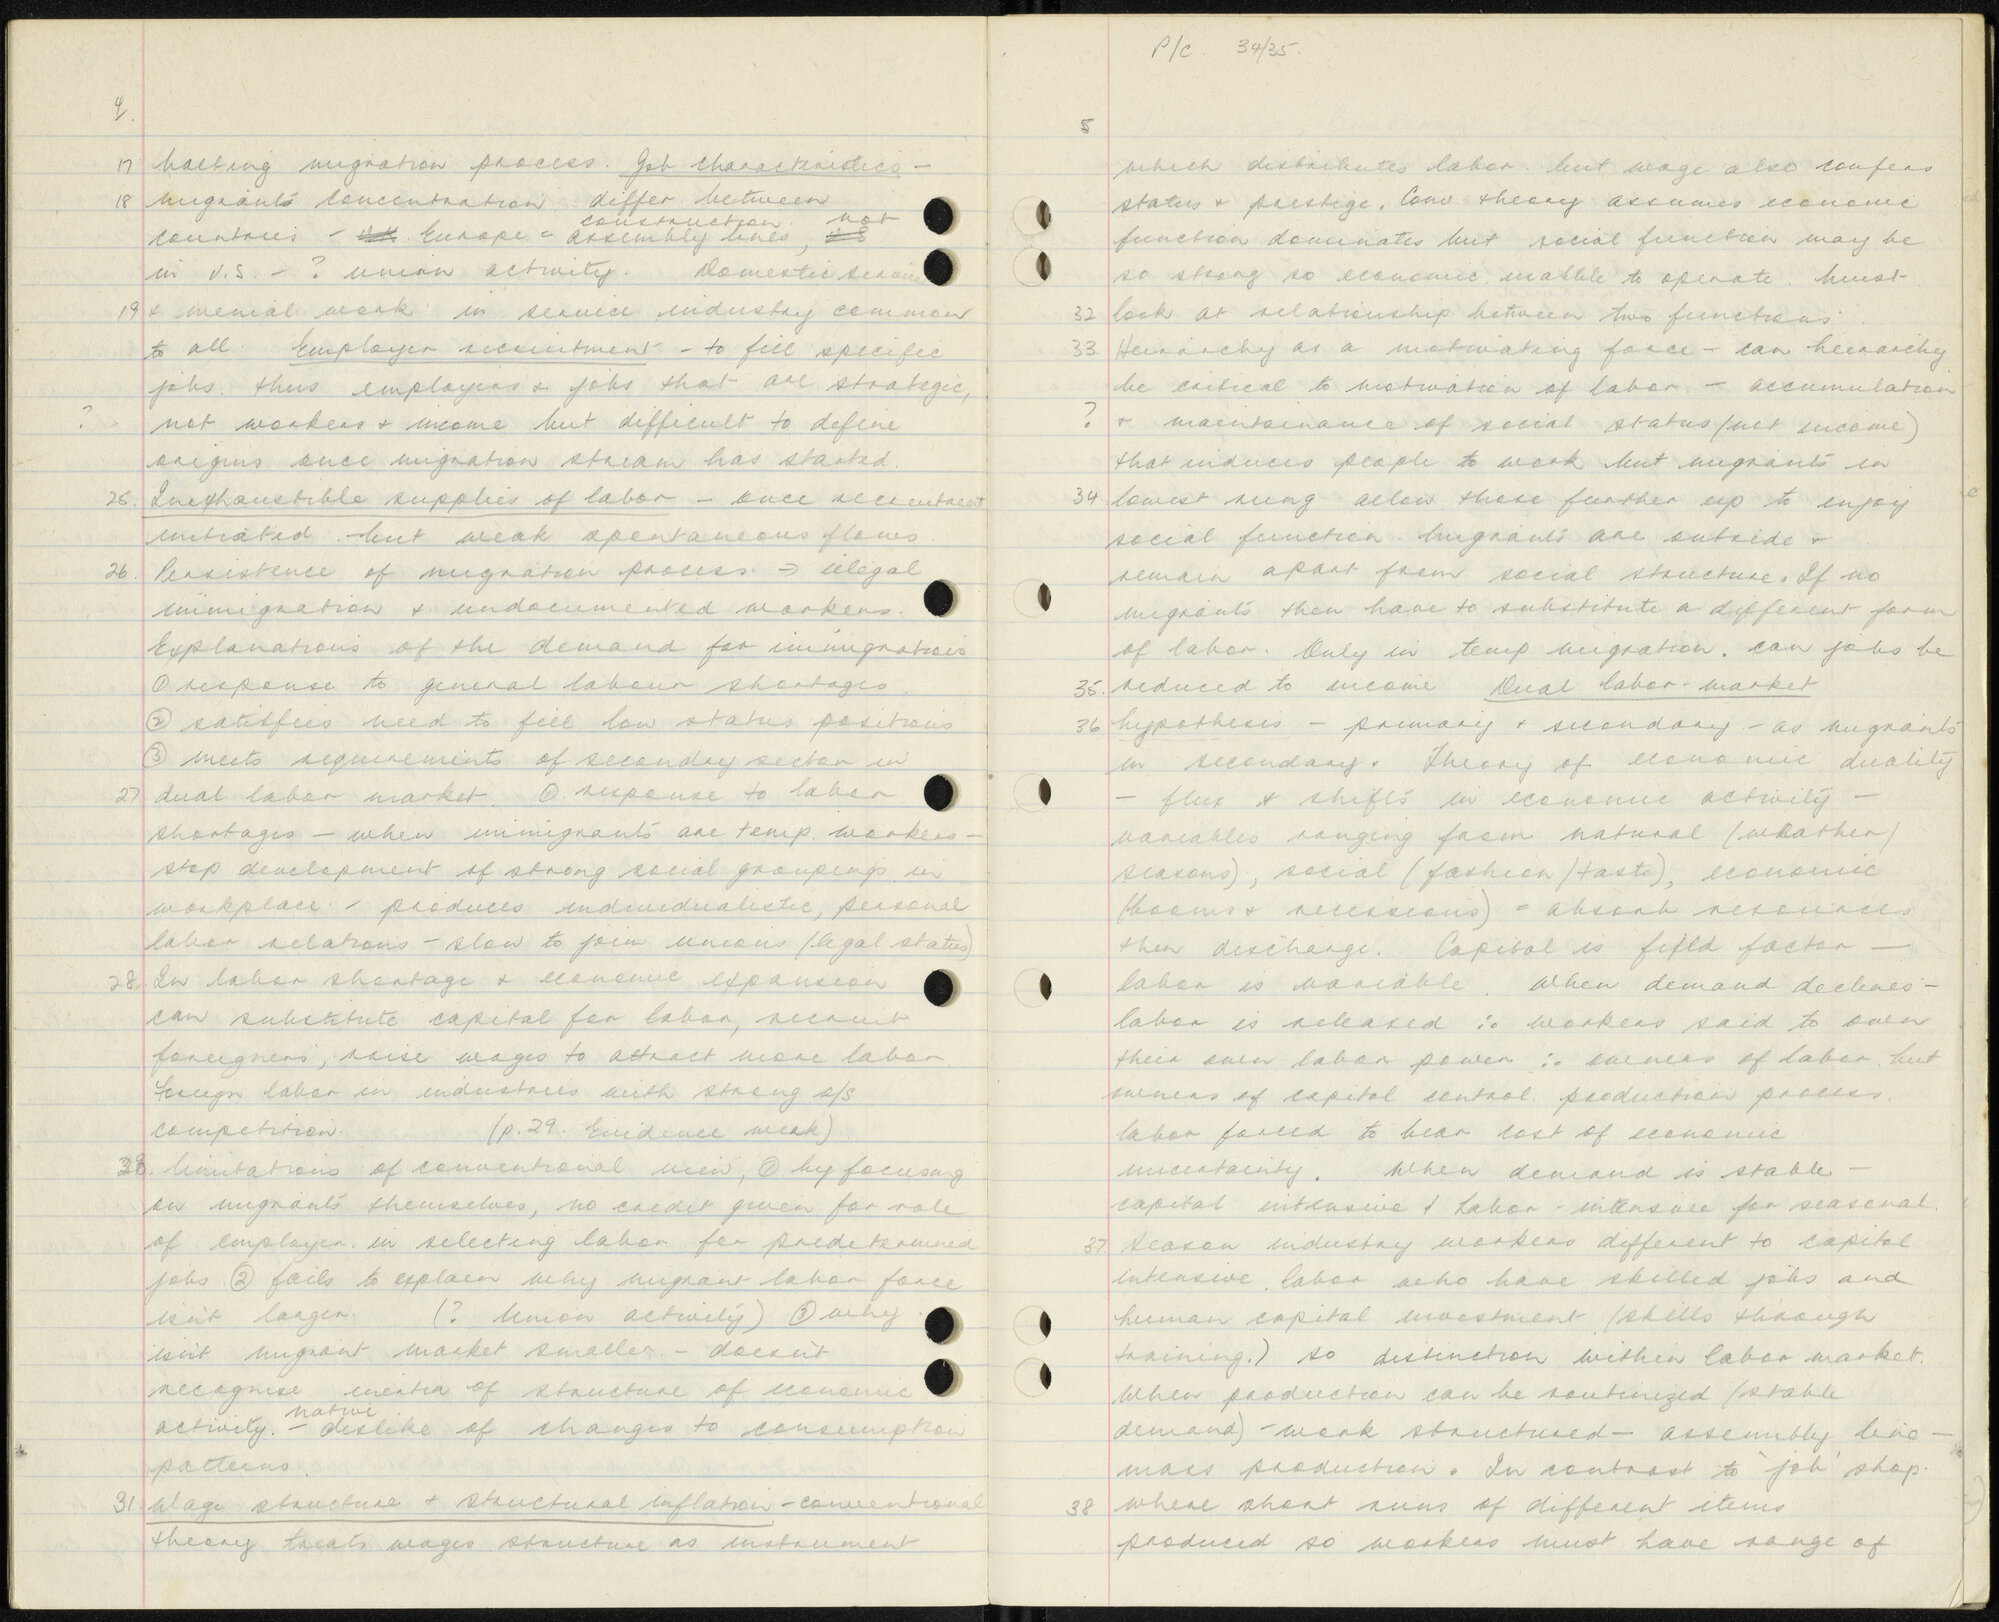 4.
17 halting migration process. Job characteristics –
18 migrants concentration differ between
construction not
countries – Europe = assembly lines,
in U.S. – ? union activity. Domestic service
19 + menial work in service industry common
to all. Employer recruitment – to fill specific
jobs. thus employers + jobs that are strategic,
? not workers + income but difficult to define
origins once migration stream has started.
25. Inexhaustible supplies of labor – once recruitment
initiated. but weak spontaneous flows
26. Persistence of migration process. → illegal
immigration + undocumented workers.
Explanations of the demand for immigrations
① response to general labour shortages.
② satisfies need to fill low status positions
③ meets requirements of secondry sector in
27 dual labor market. ① response to labor
shortages – when immigrants are temp. workers –
stop development of strong social groupings in
workplace – produces individualistic, personal
labor relations – slow to join unions (legal status)
28. In labor shortage + economic expansion
can substitute capital for labor, recruit
foreigners, raise wages to attract more labor
Foreign labor in industries with strong o/s
competition. (p.29. Evidence weak)
30. limitations of conventional view, ① by focusing
on migrants themselves, no credit given for role
of employer in selecting labor for predetermined
jobs ② fails to explain why migrant labor force
isn't larger. (? Union activity) ③ why
isn't migrant market smaller. – doesn't
recognise inertia of structure of economic
native
activity. – dislike of changes to consumption
patterns.
31. Wage structure + structural inflation – conventional
theory treats wages structure as instrument
P/c. 34/35.
5
which distributes labor. but wage also confers
status + prestige. Conv theory assumes economic
function dominates but social function may be
so strong so economic unable to operate. Must
32 look at relationship between two functions.
33. Heirarchy as a motivating force – can heirarchy
be critical to motivation of labor. – accumulation
? + maintainance of social status (not income)
that induces people to work but migrants in
34 lowest rung allow those further up to enjoy
social function. Migrants are outside +
remain apart from social structure. If no
migrants then have to substitute a different form
of labor. Only in temp migration. can jobs be
35. reduced to income Dual labor-market
36 hypothesis – primary + secondary – as migrants
in secondary. Theory of economic duality
– flux + shifts in economic activity –
variables ranging from natural (weather/
seasons), social (fashion/taste), economic
(booms + recessions) = absorb resources
then discharge. Capital is fixed factor –
labor is variable. When demand declines –
labor is released ∴ workers said to own
their own labor power ∴ owners of labor. but
owners of capital control production process.
labor forced to bear cost of economic
uncertainty. When demand is stable –
capital intensive + Labor-intensive for seasonal.
37. Season industry workers different to capital
intensive labor who have skilled jobs and
human capital investment (skills through
training.) so distinction within labor market.
When production can be routinized (stable
demand) – work structured – assembly line –
mass production. In contrast to 'job' shop.
38 where short runs of different items
produced so workers must have range of